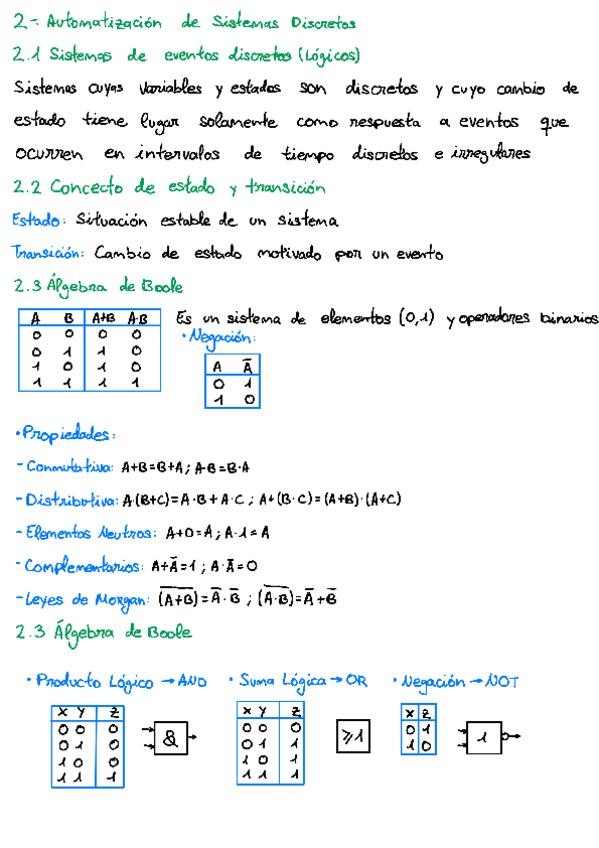 2-. Automatización de Sistemas Discretos
2.1 Sistemas de eventos discretos (Lógicos)
Sistemas cuyas variables y estados son discretos y cuyo cambio de
estado tiene lugar solamente como respuesta a eventos que
ocurren en intervalos de tiempo discretos e irregulares
2.2 Concecto de estado y transición
Estado: Situación estable de un sistema
Transición: Cambio de estado motivado por un evento
2.3 Álgebra de Boole
A B A+B A·B
0 0 0 0
0 1 1 0
1 0 1 0
1 1 1 1
Es un sistema de elementos (0,1) y operadores binarios
• Negación:
A Ā
0 1
1 0
• Propiedades:
- Conmutativa: A+B=B+A; A·B=B·A
- Distributiva: A·(B+C)=A·B+A·C; A+(B·C)=(A+B)·(A+C)
- Elementos Neutros: A+0=A; A·1=A
- Complementarios: A+Ā=1; A·Ā=0
- Leyes de Morgan: (A+B)̅=Ā·B̅; (A·B)̅=Ā+B̅
2.3 Álgebra de Boole
• Producto Lógico → AND • Suma Lógica → OR • Negación → NOT
X Y Z
0 0 0
0 1 0
1 0 0
1 1 1
&
X Y Z
0 0 0
0 1 1
1 0 1
1 1 1
≥1
X Z
0 1
1 0
1